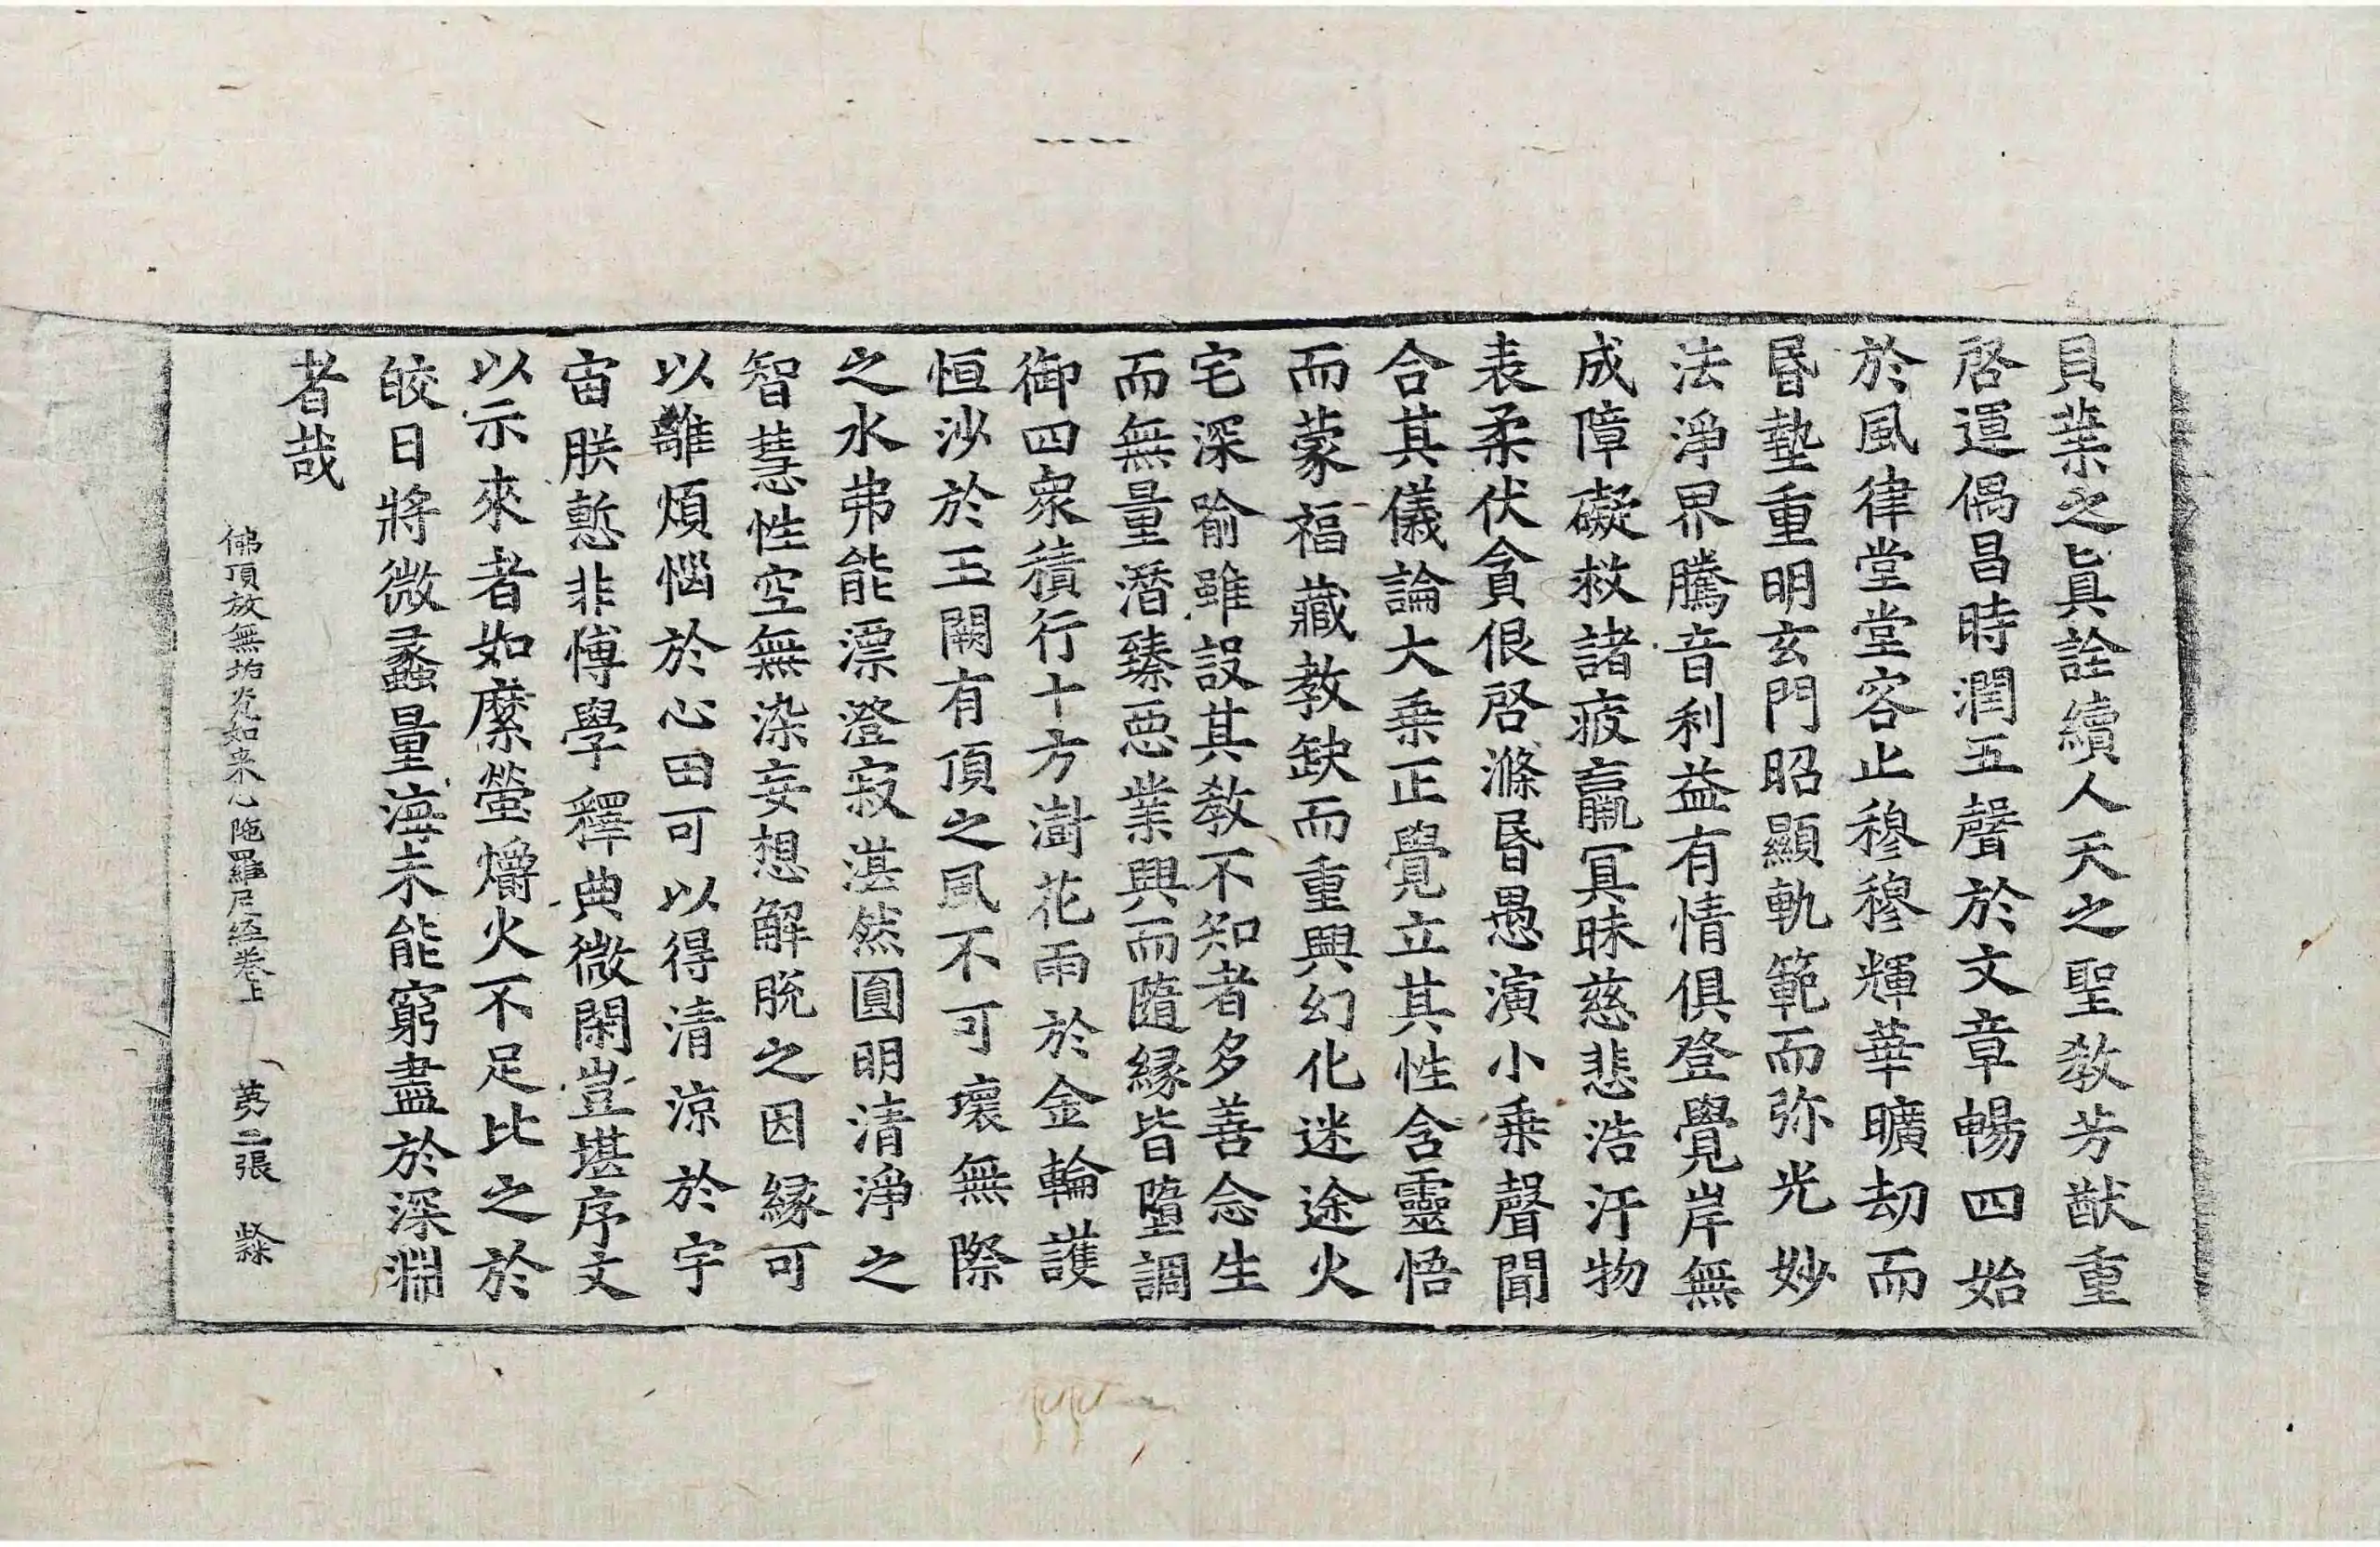 貝葉之眞詮續人天之聖教芳猷重
啓運偶昌時潤五聲於文章暢四始
於風律堂堂容止穆穆輝華曠劫而
昏墊重明玄門昭顯軌範而弥光妙
法淨界騰音利益有情俱登覺岸無
成障礙救諸疲羸冥昧慈悲浩汗物
表柔伏貪佷啓滌昏愚演小乗聲聞
合其儀論大乗正覺立其性含靈悟
而蒙福藏教缺而重興幻化迷途火
宅深喻雖設其教不知者多善念生
而無量潛臻惡業興而隨縁皆墮調
御四衆積行十方澍花雨於金輪護
恒沙於玉闕有頂之風不可壞無際
之水弗能漂澄寂湛然圓明清淨之
智慧性空無染妄想解脫之因縁可
以離煩惱於心田可以得清涼於宇
宙朕慙非愽學釋典微閑豈堪序文
以示來者如縻螢爝火不足比之於
皎日將微蠡量海未能窮盡於深淵
者哉
佛頂放無垢光如来心陁羅尼經卷上 苐二張